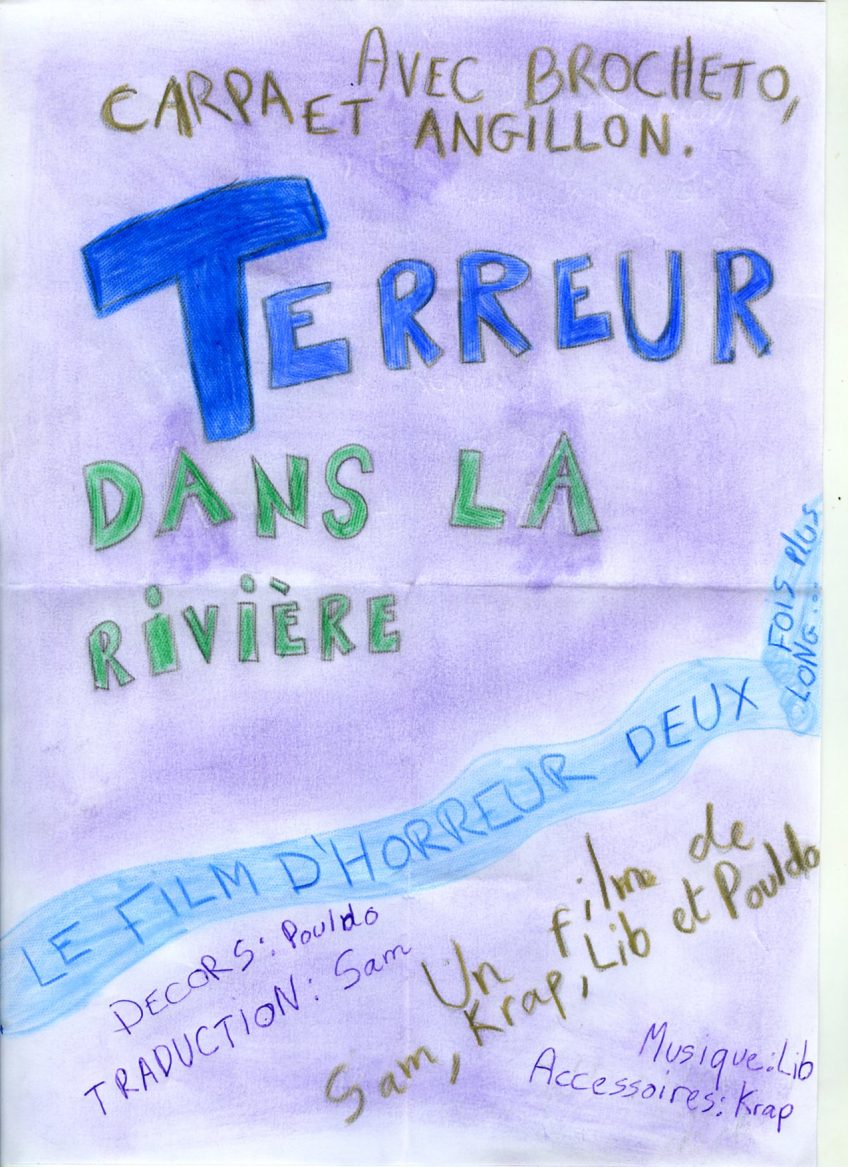 AVEC BROCHETO,
CARPA ET ANGILLON.
TERREUR
DANS LA
RIVIÈRE
LE FILM D'HORREUR DEUX
FOIS PLUS
LONG...
Un film de
Sam, Krap, Lib et Pouldo
DECORS: Pouldo
TRADUCTION: Sam
Musique: Lib
Accessoires: Krap